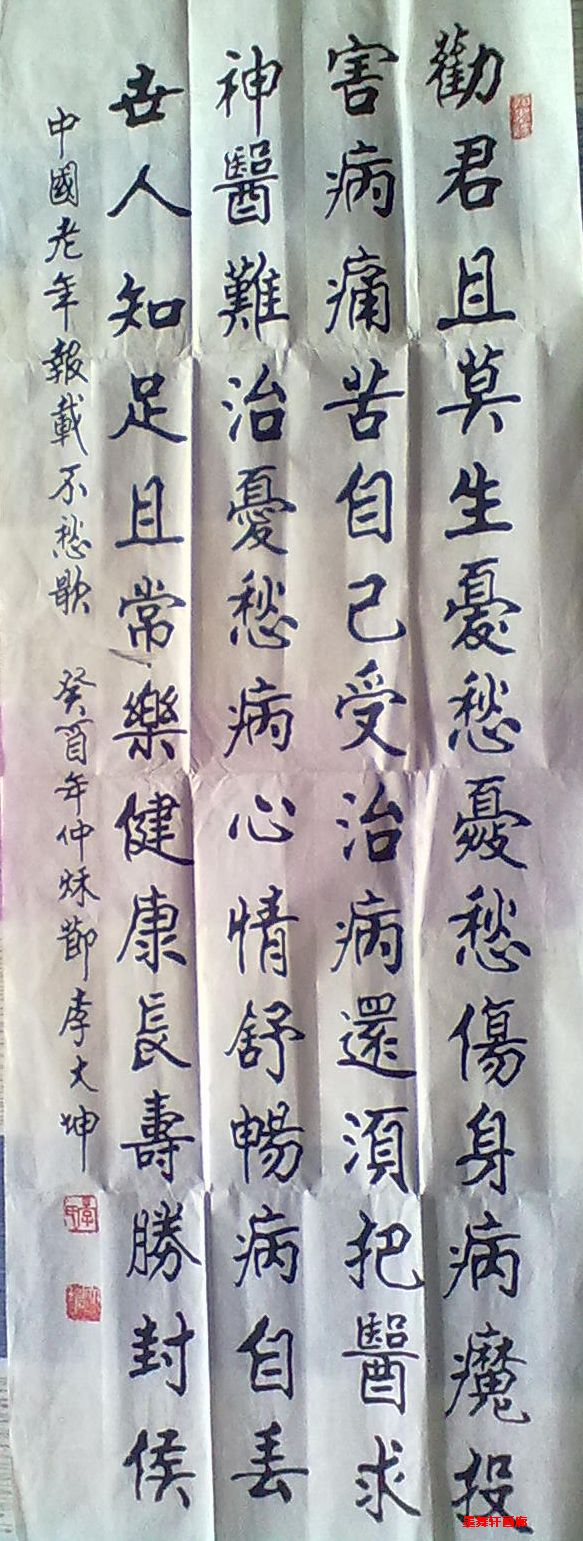 勸君且莫生憂愁憂愁傷身病魔投
害病痛苦自己受治病還須把醫求
神醫難治憂愁病心情舒暢病自丢
世人知足且常樂健康長壽勝封侯
中國老年報載不愁歌 癸酉年仲秌節李大坤
墨舞轩画廊